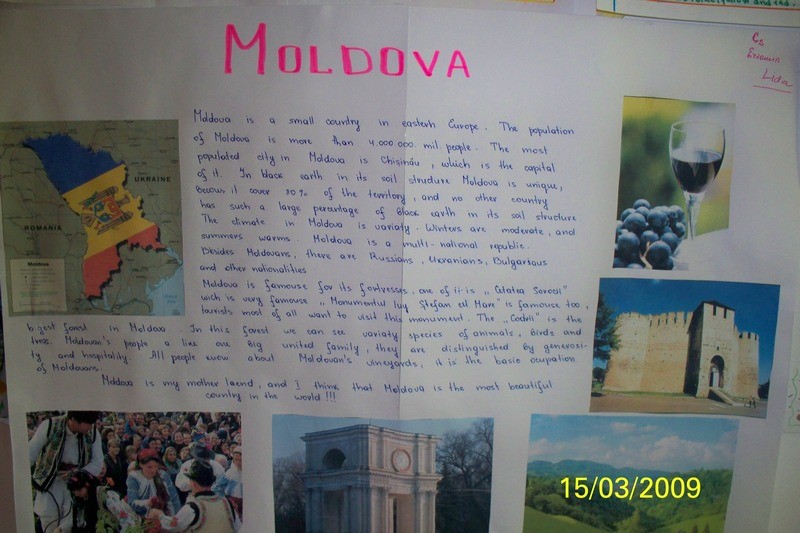 MOLDOVA
Moldova is a small country in eastern Europe. The population
of Moldova is more than 4.000 000. mil. people. The most
populated city in Moldova is Chișinău, which is the capital
of it. In black earth in its soil strudure Moldova is unique,
becous it cover 80% of the territory, and no other country
has such a large percentage of black earth in its soil structure
The climate in Moldova is variaty. Winters are moderate, and
summers warms. Moldova is a multi-national republic.
Besides Moldovans, there are Russians, Ukranians, Bulgarious
and other nationalities
Moldova is famouse for its fortresses, one of it-is „Cetatea Sorocii"
wich is very famouse „Monumentul lug Ștefan cel Mare" is famouse too,
tourists most of all want to visit this monument. The „Codrii" is the
bigest forest in Moldova. In this forest we can see variaty species of animals, birds and
trees. Moldovan's people a like one big united family, they are distinguished by generosi-
ty and hospitality. All people know about Moldovan's vineyards, it is the basic ocupation
of Moldovans.
Moldova is my mother laend, and I think that Moldova is the most beautiful
country in the world !!!
UKRAINE
ROMANIA
Moldova
Lida
15/03/2009